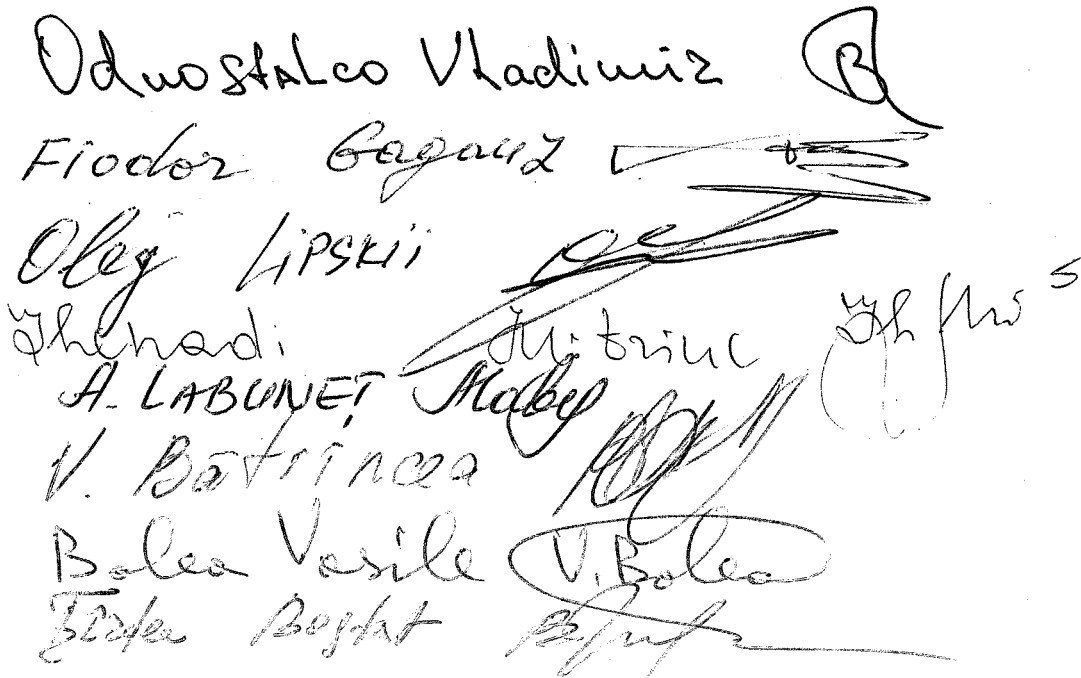 Odnostalco Vladimir
Fiodor Gagauz
Oleg Lipskii
Ghenadi Mitriuc
A. LABUNEȚ
V. Bătrîncea
Bolea Vasile V. Bolea
Țîrdea